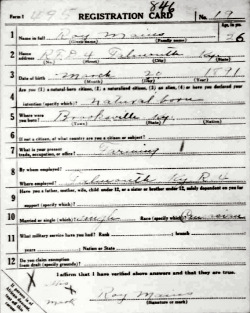 846
Form 1 495 REGISTRATION CARD No. 19
1 Name in full Roy Maines Age, in yrs.
(Given name) (Family name) 26
2 Home address R.F.D. #4 Falmouth Ky.
(No.) (Street) (City) (State)
3 Date of birth March 20 1891
(Month) (Day) (Year)
4 Are you (1) a natural-born citizen, (2) a naturalized citizen, (3) an alien, (4) or have you declared your
intention (specify which)? Natural born
5 Where were you born? Brooksville Ky
(Town) (State) (Nation)
6 If not a citizen, of what country are you a citizen or subject?
7 What is your present trade, occupation, or office? Farming
8 By whom employed?
Where employed? Falmouth Ky R.
9 Have you a father, mother, wife, child under 12, or a sister or brother under 12, solely dependent on you for
support (specify which)?
10 Married or single (which)? Single Race (specify which)? Caucasian
11 What military service have you had? Rank ; branch
years ; Nation or State
12 Do you claim exemption from draft (specify grounds)?
I affirm that I have verified above answers and that they are true.
His
X
mark
Roy Maines
(Signature or mark)